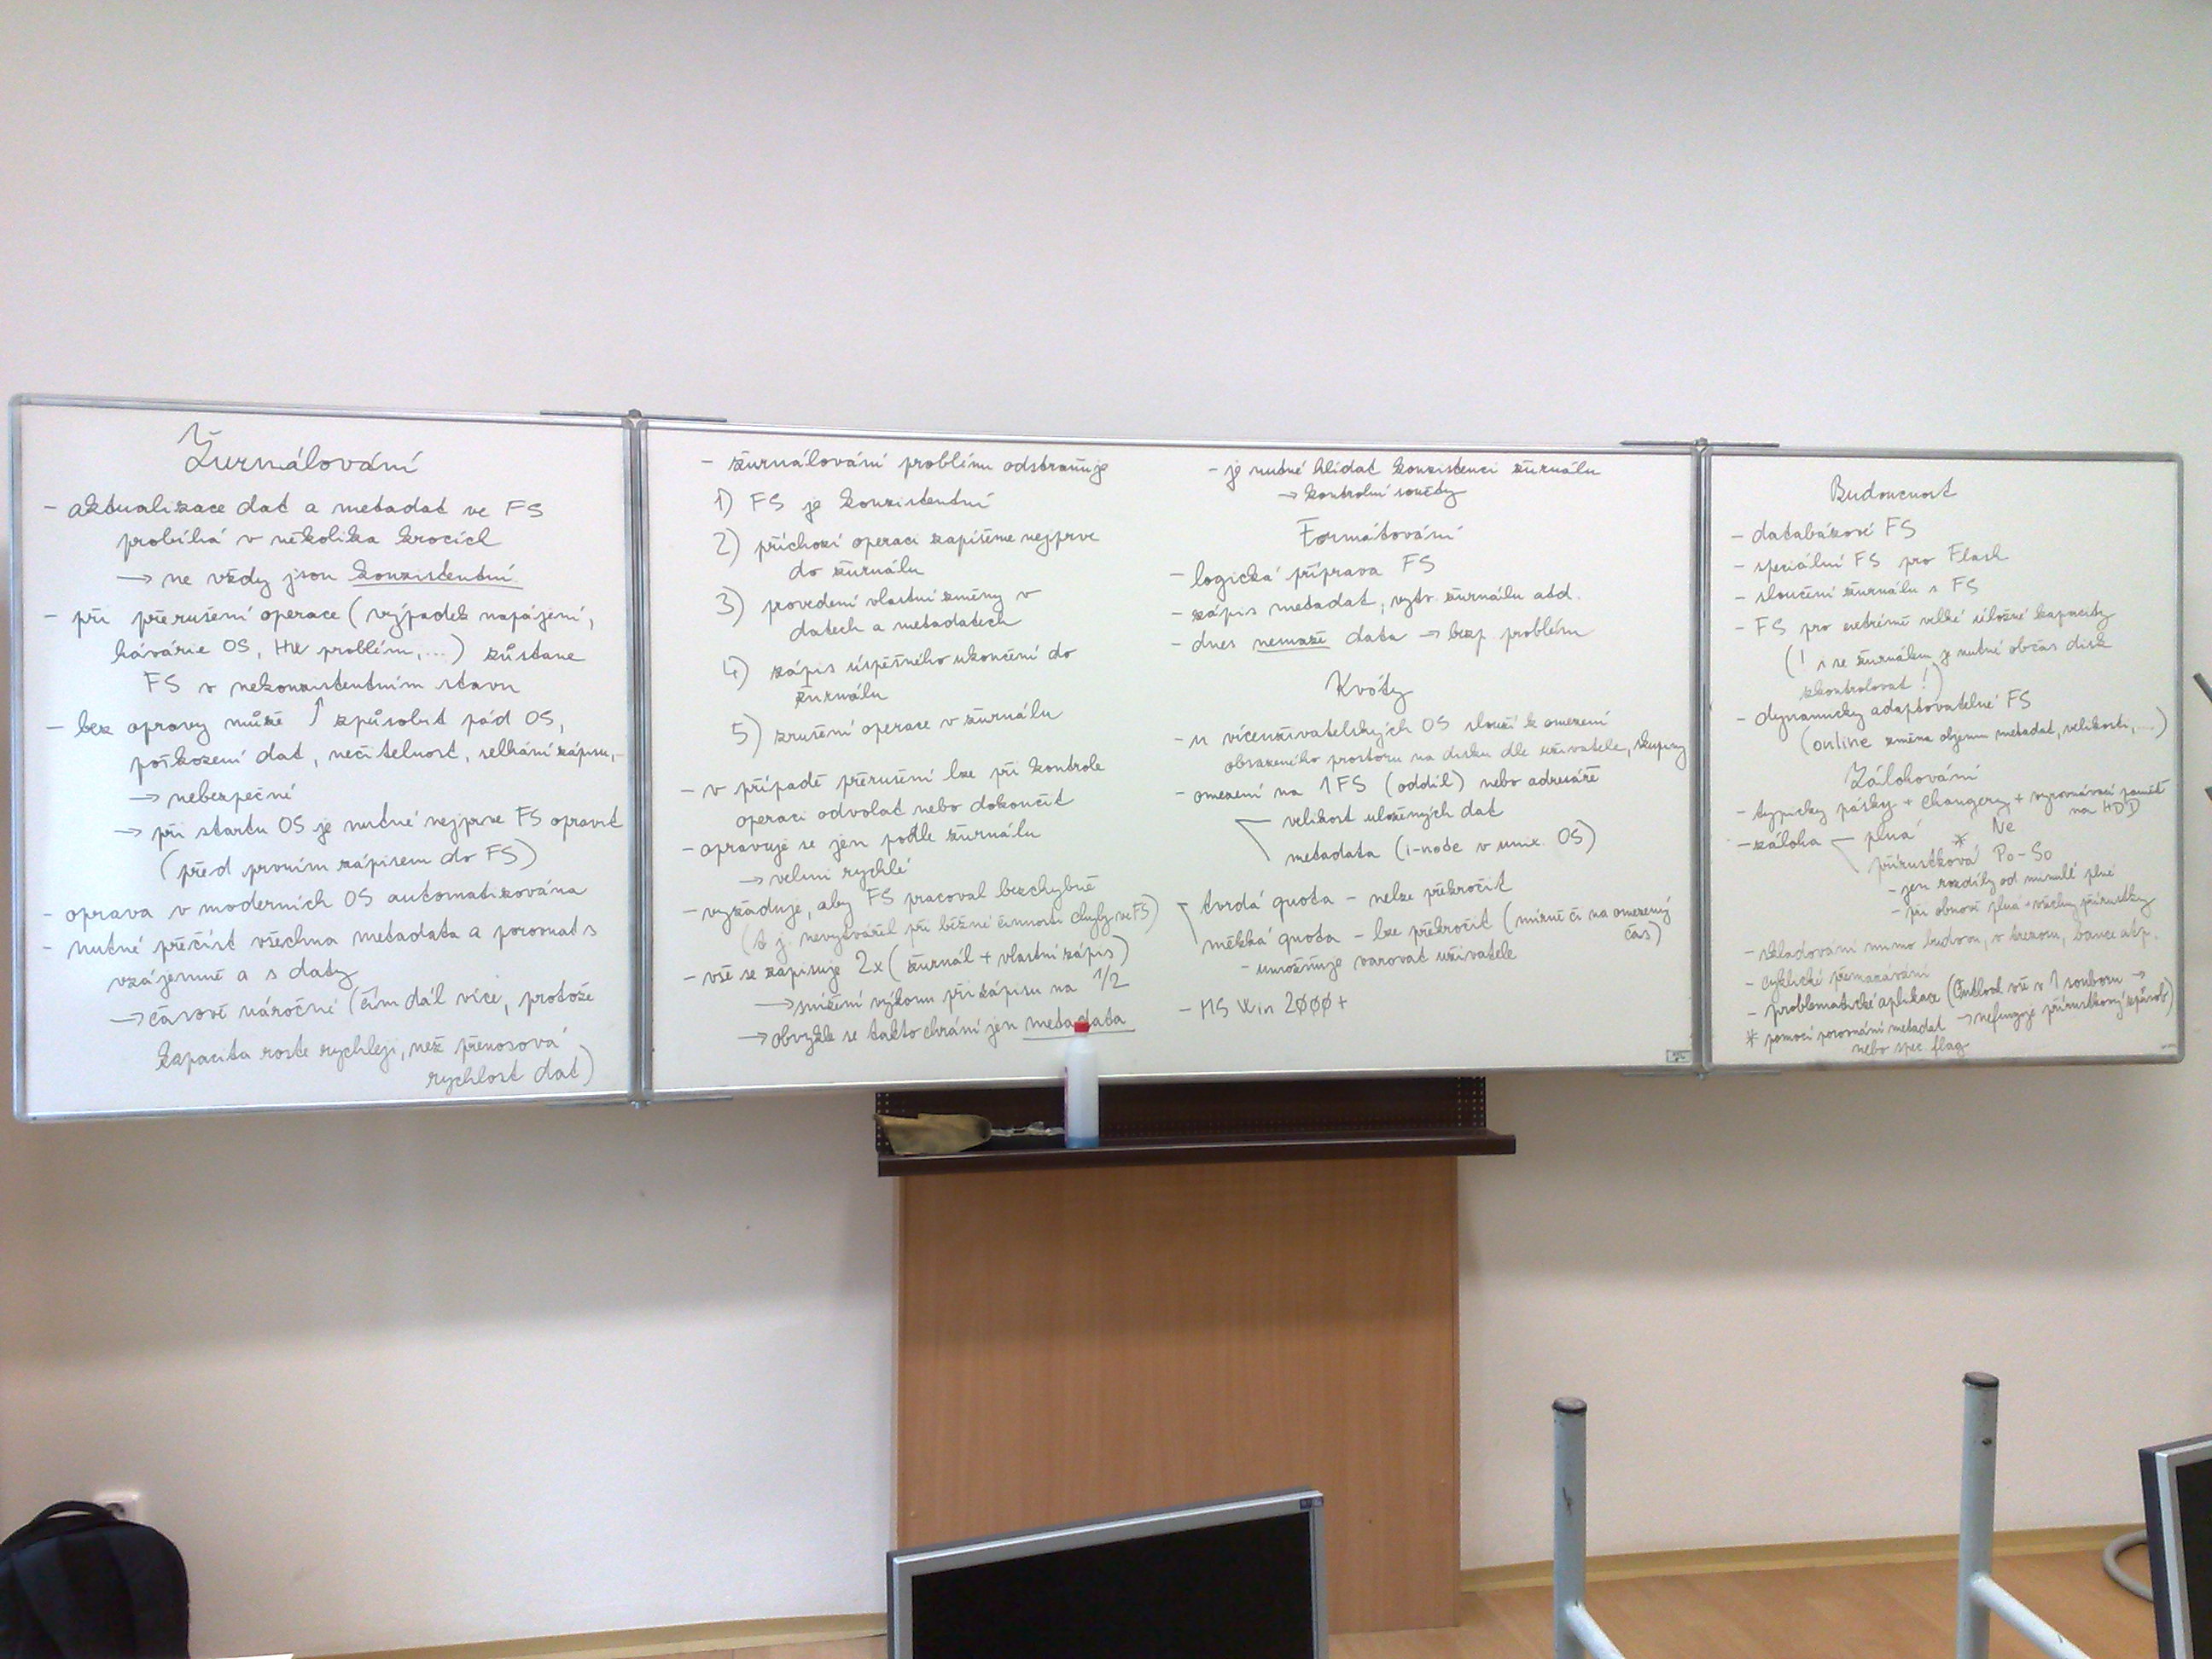 Žurnálování
- aktualizace dat a metadat ve FS
probíhá v několika krocích
→ ne vždy jsou konzistentní
- při přerušení operace (výpadek napájení,
havárie OS, HW problém, ...) zůstane
FS v nekonzistentním stavu
- bez opravy může ↑ způsobit pád OS,
poškození dat, nečitelnost, selhání zápisu, ...
→ nebezpečné
→ při startu OS je nutné nejprve FS opravit
(před prvním zápisem do FS)
- oprava v moderních OS automatizována
- nutné přečíst všechna metadata a porovnat s
vzájemně a s daty
→ časově náročné (čím dál více, protože
kapacita roste rychleji, než přenosová
rychlost dat)
- žurnálování problému odstraňuje
1) FS je konzistentní
2) příchozí operaci zapíšeme nejprve
do žurnálu
3) provedení vlastní změny v
datech a metadatech
4) zápis úspěšného ukončení do
žurnálu
5) zrušení operace v žurnálu
- v případě přerušení lze při kontrole
operaci odvolat nebo dokončit
- opravuje se jen podle žurnálu
→ velmi rychlé
- vyžaduje, aby FS pracoval bezchybně
(t.j. nevytvářel při běžné činnosti chyby ve FS)
- vše se zapisuje 2x (žurnál + vlastní zápis)
→ snížení výkonu při zápisu na 1/2
→ obvykle se takto chrání jen metadata
- je nutné hlídat konzistenci žurnálu
→ kontrolní součty
Formátování
- logická příprava FS
- zápis metadat, vytv. žurnálu atd.
- dnes nemaže data → bezp. problém
Kvóty
- u víceuživatelských OS slouží k omezení
obsazeného prostoru na disku dle uživatele, skupiny
- omezení na 1 FS (oddíl) nebo adresáře
velikost uložených dat
metadata (i-node v unix. OS)
- tvrdá quota - nelze překročit
měkká quota - lze překročit (mírně či na omezený
čas)
- umožňuje varovat uživatele
- MS Win 2000+
Budoucnost
- databázové FS
- speciální FS pro Flash
- sloučení žurnálu s FS
- FS pro extrémně velké úložné kapacity
(! i se žurnálem je nutné občas disk
zkontrolovat !)
- dynamicky adaptovatelné FS
(online změna objemu metadat, velikosti, ...)
Zálohování
- typicky pásky + changery + vyrovnávací paměť
na HDD
- záloha - plná Ne
přírustková* Po-So
- jen rozdíly od minulé plné
- při obnově plná + všechny přírustky
- skladování mimo budovu, v trezoru, bance atp.
- cyklické přemazávání
- problematické aplikace (Outlook vše v 1 souboru →
→ nefunguje přírustkový způsob)
* pomocí porovnání metadat
nebo spec. flag